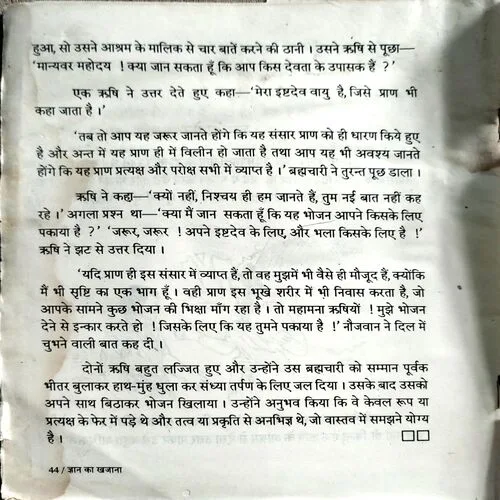 हुआ, सो उसने आश्रम के मालिक से चार बातें करने की ठानी । उसने ऋषि से पूछा—
'मान्यवर महोदय ! क्या जान सकता हूँ कि आप किस देवता के उपासक हैं ?'
एक ऋषि ने उत्तर देते हुए कहा—'मेरा इष्टदेव वायु है, जिसे प्राण भी
कहा जाता है ।'
'तब तो आप यह जरूर जानते होंगे कि यह संसार प्राण को ही धारण किये हुए
है और अन्त में यह प्राण ही में विलीन हो जाता है तथा आप यह भी अवश्य जानते
होंगे कि यह प्राण प्रत्यक्ष और परोक्ष सभी में व्याप्त है ।' ब्रह्मचारी ने तुरन्त पूछ डाला ।
ऋषि ने कहा—'क्यों नहीं, निश्चय ही हम जानते हैं, तुम नई बात नहीं कह
रहे ।' अगला प्रश्न था—'क्या मैं जान सकता हूँ कि यह भोजन आपने किसके लिए
पकाया है ?' 'जरूर, जरूर ! अपने इष्टदेव के लिए, और भला किसके लिए है !'
ऋषि ने झट से उत्तर दिया ।
'यदि प्राण ही इस संसार में व्याप्त हैं, तो वह मुझमें भी वैसे ही मौजूद हैं, क्योंकि
मैं भी सृष्टि का एक भाग हूँ । वही प्राण इस भूखे शरीर में भी निवास करता है, जो
आपके सामने कुछ भोजन की भिक्षा माँग रहा है । तो महामना ऋषियों ! मुझे भोजन
देने से इन्कार करते हो ! जिसके लिए कि यह तुमने पकाया है !' नौजवान ने दिल में
चुभने वाली बात कह दी ।
दोनों ऋषि बहुत लज्जित हुए और उन्होंने उस ब्रह्मचारी को सम्मान पूर्वक
भीतर बुलाकर हाथ-मुंह धुला कर संध्या तर्पण के लिए जल दिया । उसके बाद उसको
अपने साथ बिठाकर भोजन खिलाया । उन्होंने अनुभव किया कि वे केवल रूप या
प्रत्यक्ष के फेर में पड़े थे और तत्व या प्रकृति से अनभिज्ञ थे, जो वास्तव में समझने योग्य
है । □□
44 / ज्ञान का खजाना